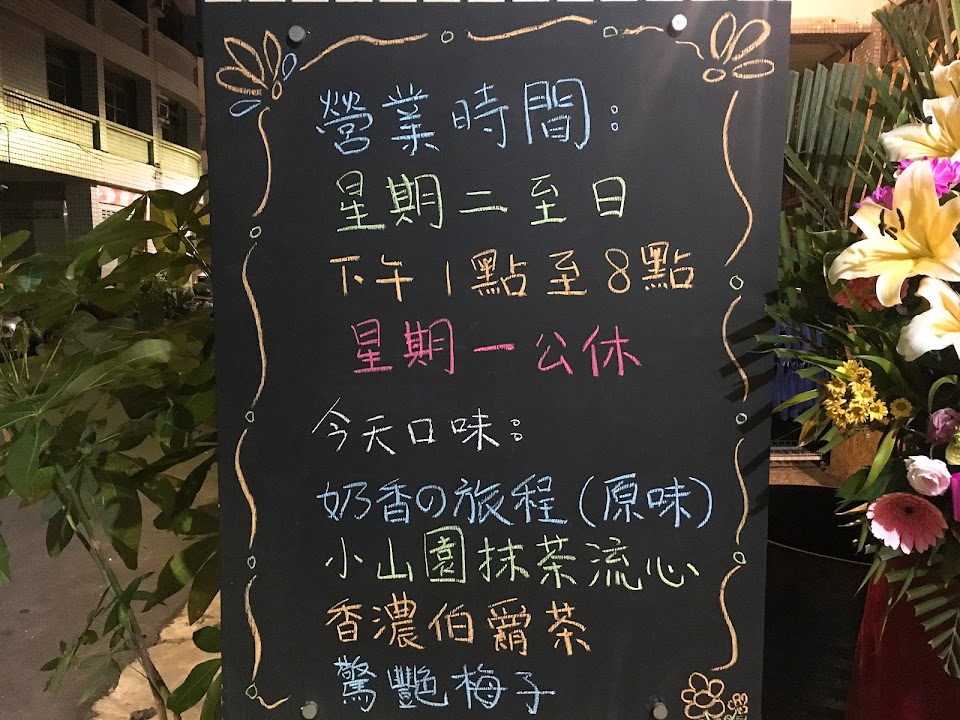 營業時間:
星期二至日
下午1點至8點
星期一公休
今天口味:
奶香の旅程(原味)
小山園抹茶流心
香濃伯爵茶
驚艷梅子